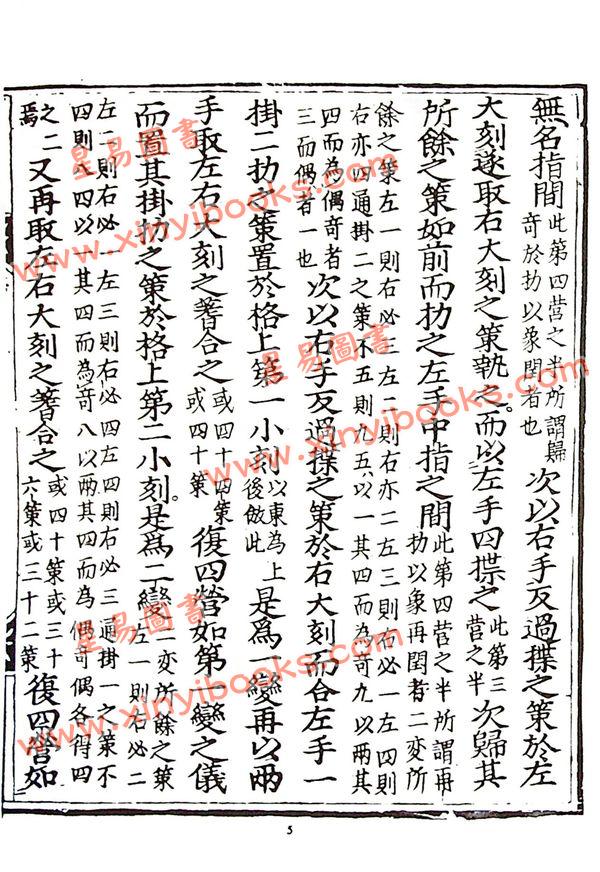 無名指間
此第四营之半所謂歸
竒於扐以象閏者也
次以右手反過揲之策於左
大刻遂取右大刻之策執之。而以左手四揲之
此第三
营之半
次歸其
所餘之策如前而扐之左手中指之間
此第四营之半所謂再
扐以象再閏者二变所
餘之策左一則右必三左二則右亦二左三則右必一左四則
右亦四通掛二之策不五則九五以一其四而為竒九以兩其
四而為偶竒者
三而偶者一也
次以右手反過揲之策於右大刻而合左手一
掛二扐之策置於格上第一小刻
以東為上
後倣此
是爲一變再以兩
手取左右大刻之蓍合之
或四十四策
或四十策
復四營如第一變之儀
而置其掛扐之策於格上第二小刻。是爲二變
二变所餘之策
左一則右必二
左二則右必一左三則右必四左四則右必三通掛一之策不
四則八四以一其四而為竒八以兩其四而為偶竒偶各得四
之二
焉
又再取左右大刻之蓍合之
或四十策或三十
六策或三十二策
復四營如
星易圖書
www.xinyibooks.com
星易圖書
www.xinyibooks.com
星易圖書
www.xinyibooks.com
5